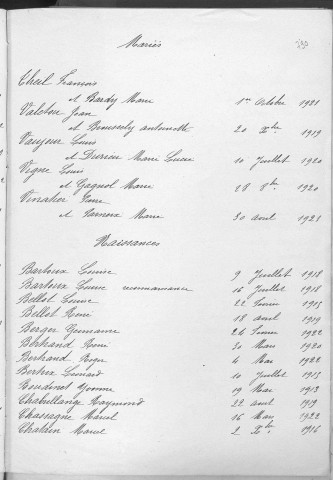 Mariés
Theil François
et Bardy Marie 1er Octobre 1921
Valeton Jean
et Brousely antoinette 20 Xbre 1919
Vaujour Louis
et Marie Lucie 10 Juillet 1920
Vigne Louis
et Gagnol Marie 18 8bre 1921
Vinatier
et Marie 30 avril 1921
Naissances
Bartoux Louise 9 Juillet 1918
Bartoux Louise reconnaissance 16 Juillet 1918
Bellot 22 Février 1915
Bellot René 18 avril 1919
Berger Germaine 26 Février 1922
Bertrand René 30 Mars 1920
Bertrand Roger 4 Mai 1922
Léonard 10 Juillet 1915
Boudinet Yvonne 19 Mars 1913
Chabellange Raymond 29 avril 1919
Chassagne Marcel 16 Mars 1922
Chatain Marcel 2 Xbre 1916